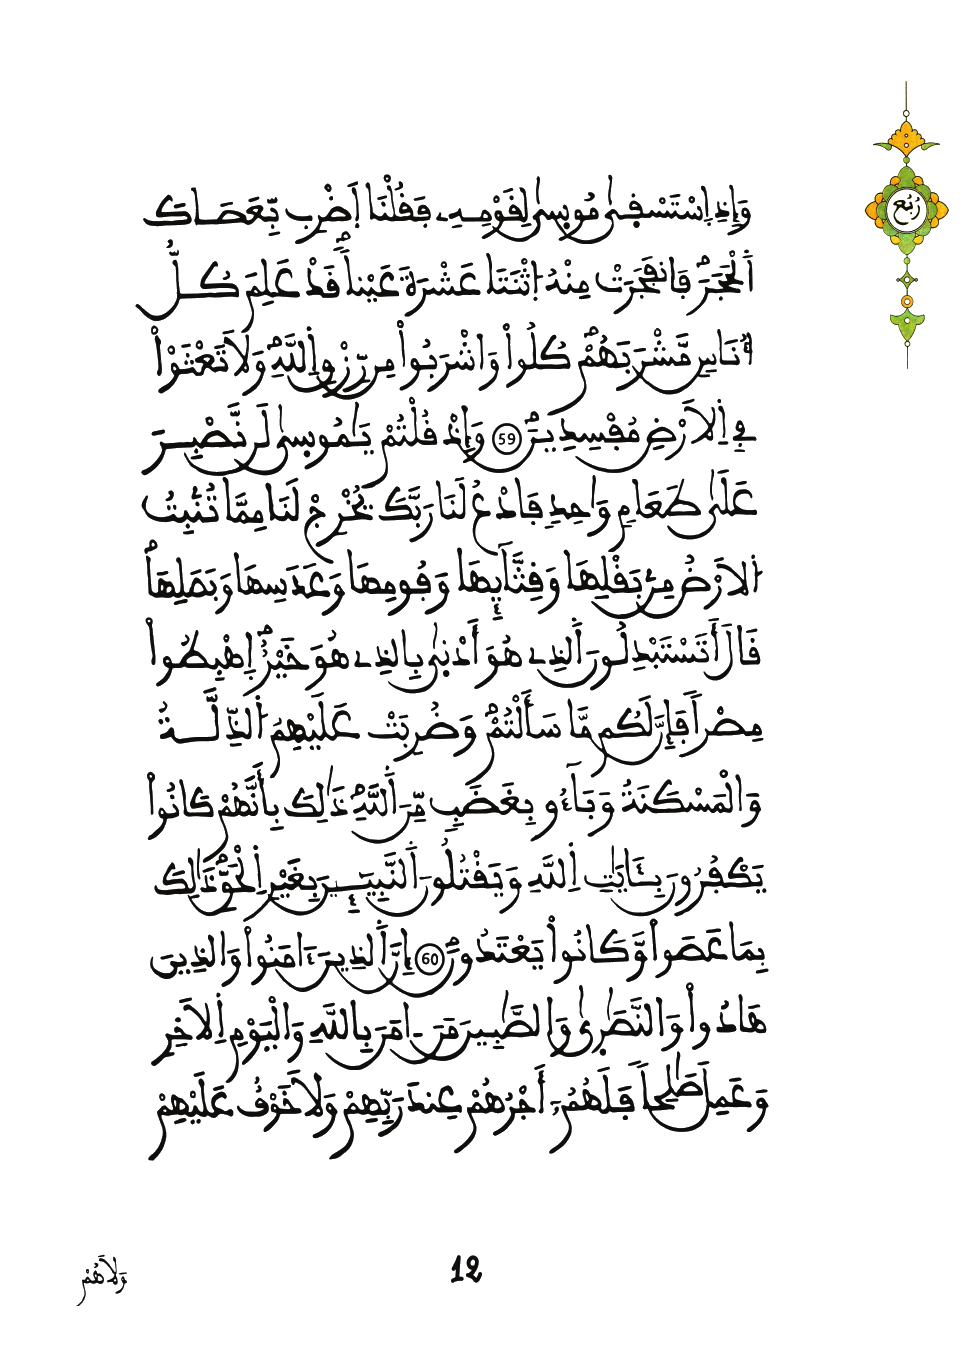 رُبُع
وَإِذِ اِ۪سْتَسْق۪ىٰ مُوس۪ىٰ لِقَوْمِهِۦ فَقُلْنَا اَ۪ضْرِب بِّعَصَاكَ
اَ۬لْحَجَرَۖ فَانفَجَرَتْ مِنْهُ اُ۪ثْنَتَا عَشْرَةَ عَيْناٗۖ قَدْ عَلِمَ كُلُّ
أُنَاسٖ مَّشْرَبَهُمْۖ كُلُواْ وَاشْرَبُواْ مِن رِّزْقِ اِ۬للَّهِۖ وَلَا تَعْثَوْاْ
فِے اِ۬لَارْضِ مُفْسِدِينَۖ 59 وَإِذْ قُلْتُمْ يَٰمُوس۪ىٰ لَن نَّصْبِرَ
عَلَىٰ طَعَامٖ وَٰحِدٖ فَادْعُ لَنَا رَبَّكَ يُخْرِجْ لَنَا مِمَّا تُنۢبِتُ
اُ۬لَارْضُ مِنۢ بَقْلِهَا وَقِثَّآئِهَا وَفُومِهَا وَعَدَسِهَا وَبَصَلِهَاۖ
قَالَ أَتَسْتَبْدِلُونَ اَ۬لذِے هُوَ أَدْن۪ىٰ بِالذِے هُوَ خَيْرٌۖ اِ۪هْبِطُواْ
مِصْراٗ فَإِنَّ لَكُم مَّا سَأَلْتُمْۖ وَضُرِبَتْ عَلَيْهِمُ اُ۬لذِّلَّةُ
وَالْمَسْكَنَةُ وَبَآءُو بِغَضَبٖ مِّنَ اَ۬للَّهِۖ ذَٰلِكَ بِأَنَّهُمْ كَانُواْ
يَكْفُرُونَ بِـَٔايَٰتِ اِ۬للَّهِ وَيَقْتُلُونَ اَ۬لنَّبِيٓـِٕينَ بِغَيْرِ اِ۬لْحَقِّۖ ذَٰلِكَ
بِمَا عَصَواْ وَّكَانُواْ يَعْتَدُونَۖ 60 إِنَّ اَ۬لذِينَ ءَامَنُواْ وَالذِينَ
هَادُواْ وَالنَّصَٰر۪ىٰ وَالصَّٰبِينَ مَنَ ـ اٰمَنَ بِاللَّهِ وَالْيَوْمِ اِ۬لَاخِرِ
وَعَمِلَ صَٰلِحاٗ فَلَهُمُۥٓ أَجْرُهُمْ عِندَ رَبِّهِمْ وَلَا خَوْفٌ عَلَيْهِمْ
12
وَلَا هُمْ